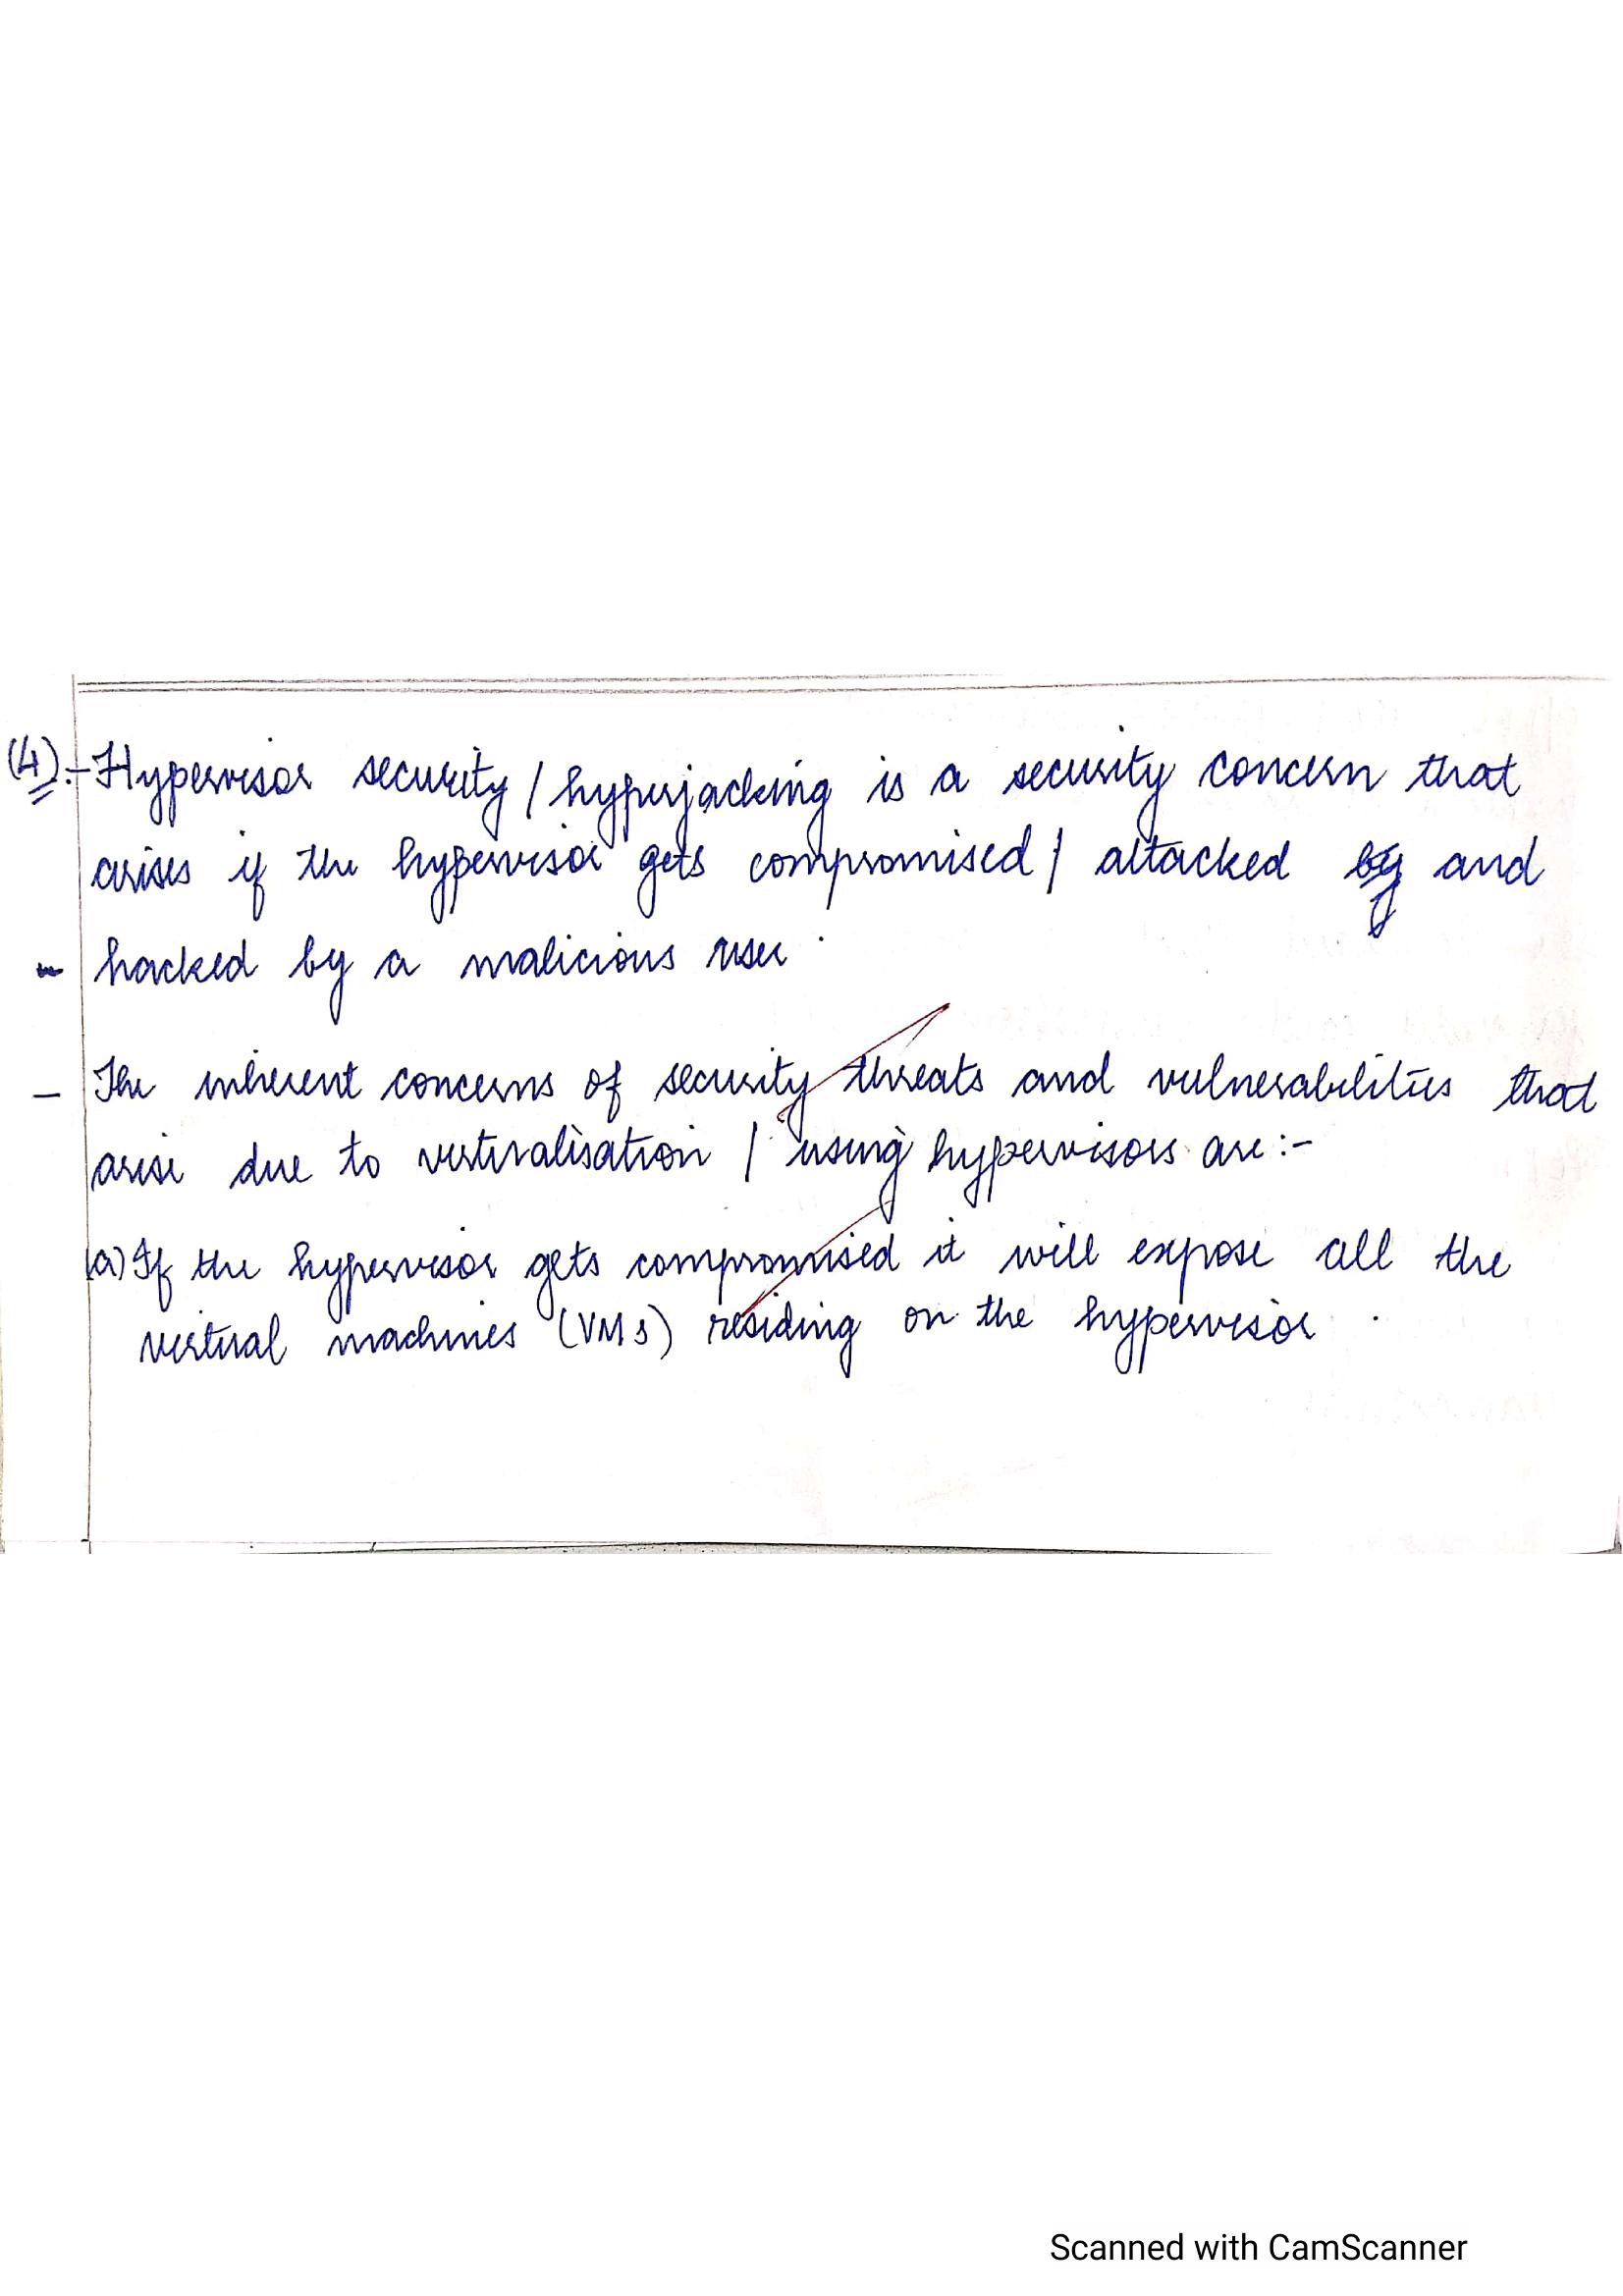 (4):- Hypervisor security / hyperjacking is a security concern that
arises if the hypervisor gets compromised / attacked by and
hacked by a malicious user.
- The inherent concerns of security threats and vulnerabilities that
arise due to virtualisation / using hypervisors are:-
(a) If the hypervisor gets compromised it will expose all the
virtual machines (VMs) residing on the hypervisor.
Scanned with CamScanner